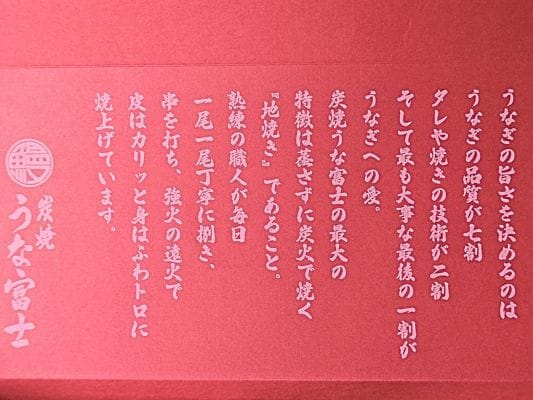 うなぎの旨さを決めるのは
うなぎの品質が七割
タレや焼きの技術が二割
そして最も大事な最後の一割が
うなぎへの愛。
炭焼うな富士の最大の
特徴は蒸さずに炭火で焼く
『地焼き』であること。
熟練の職人が毎日
一尾一尾丁寧に捌き、
串を打ち、強火の遠火で
皮はカリッと身はふわトロに
焼上げています。
鰻
炭焼
うな富士